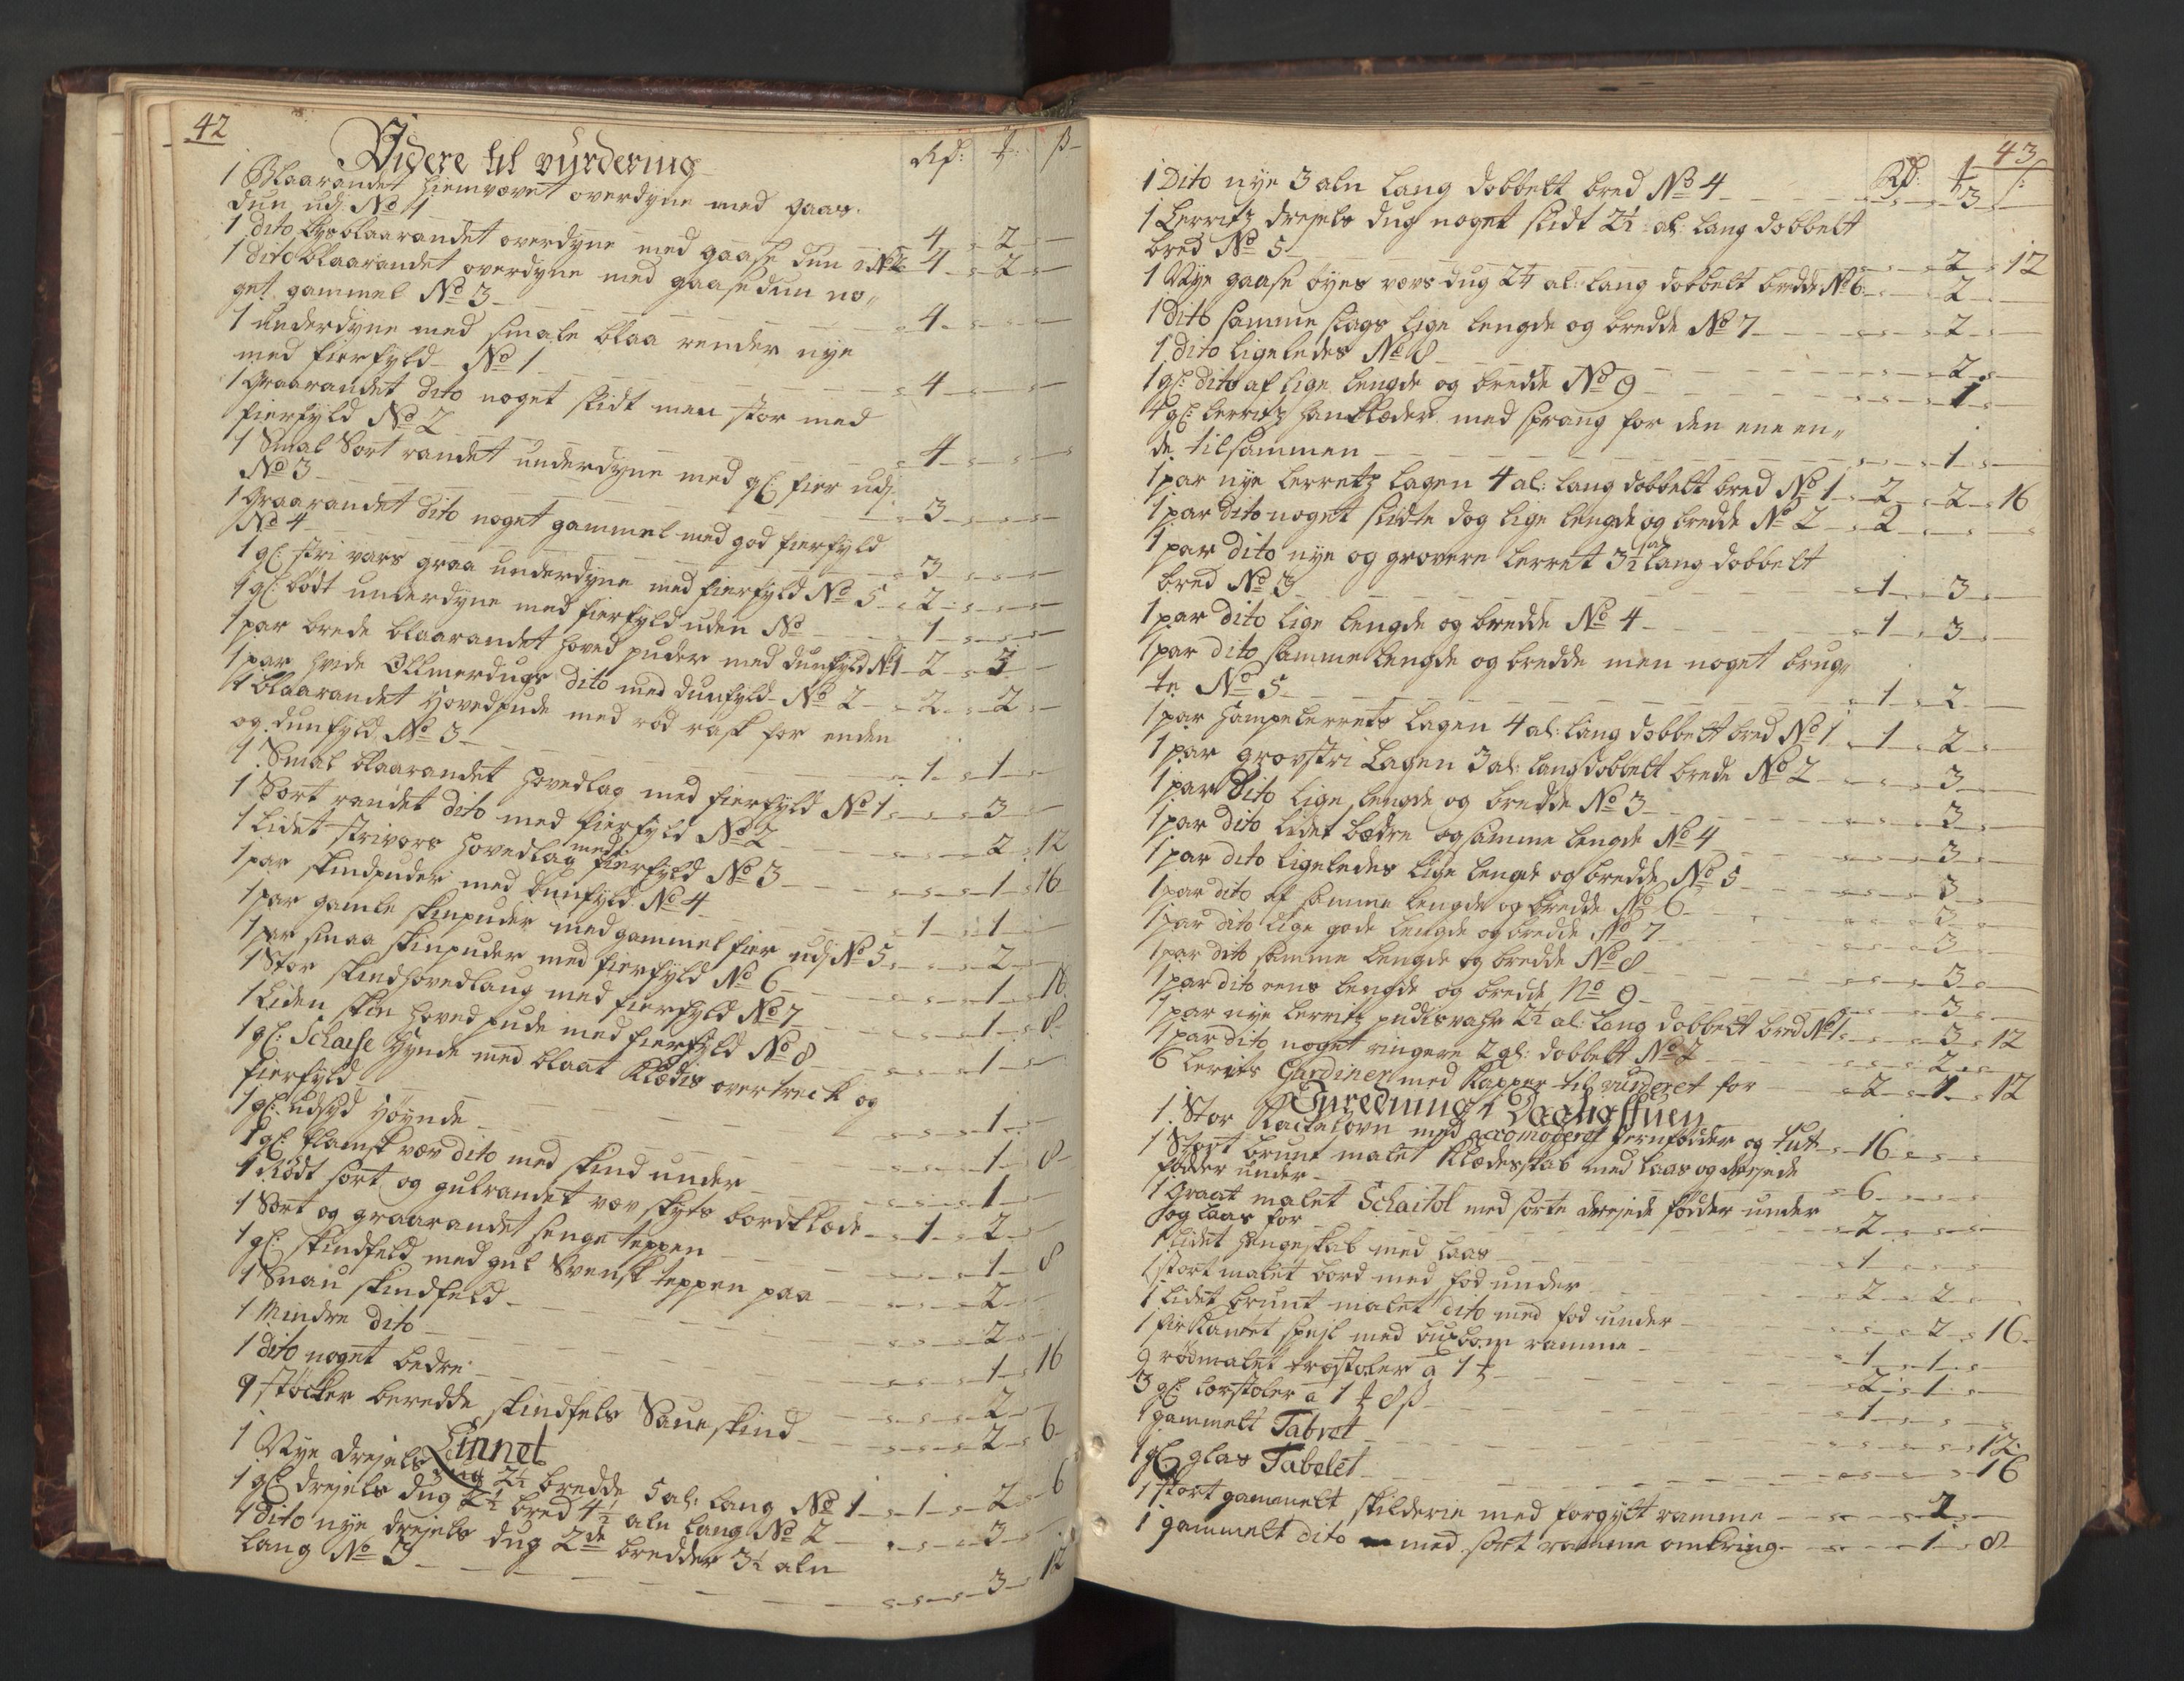 42
Videre til vurdering
Rd: ƶ: ß
1 Blaarandet hiemvævet overdyne med gaas¬
dun udj No 1 4 2
1 dito lysblaarandet overdyne med gaase dun i No 2 4 2
1 dito blaarandet overdyne med gaasedun no„
get gammel No 3 4
1 underdyne med smale blaa render nye
med fierfyld No 1 4
1 Graarandet dito noget slidt men stor med
fierfyld No 2 4
1 Smal Sort randet underdyne med gl: fier udj
No 3 3
1 Graarandet dito noget gammel med god fierfyld
No 4 3
1 gl: stri vars graa underdyne med fierfyld No 5 2
1 gl: bødt underdyne med fierfyld uden No 1
1 par brede blaarandet hoved puder med dunfyld No 1 2 3
1 par hvide Ollmerdugs dito med dunfyld No 2 2 2
1 blaarandet Hovedpude med rød rask for enden
og dunfyld No 3 1 1
1 Smal blaarandet hovedlag med fierfyld No 1 3
1 Sort randet dito med fierfyld No 2 2 12
1 Lidet strivars hovedlag med fierfyld No 3 1 16
1 par skindpuder med dunfyld No 4 1 1
1 par gamle skinpuder med gammel fier udj No 5 2
1 par smaa skinpuder med fierfyld No 6 1 16
1 Stor skindhovedlaug med fierfyld No 7 1 8
1 Liden skin hoved pude med fierfyld No 8 1
1 gl: Schaise Hynde med blaat Klædis overtreck og
fierfyld 1
1 gl: udsyd Høynde 1 8
1 gl: flamsk vær dito med skind under 1
1 Rødt sort og gulrandet vær skyts bordklæde 1 2
1 Sort og graarandet senge teppen 1 8
1 gl: skindfeld med gul Svensk teppen paa 2
1 Snau skindfeld 2
1 Mindre dito 1 16
1 dito noget bedre 2
9 støcker beredde skindfels Saueskind 2 6
Linnet
1 Nye drejels dug 2½ bredde 5 al: lang No 1 1 2 6
1 gl: drejels dug 2½ bred 4½ aln lang No 2 3
1 dito nye drejels dug 2de bredder 3½ aln
lang No 3 3 12
43
Rd: ƶ ß
1 Dito nye 3 aln lang dobbelt bred No 4 3
1 Lerritz drejels dug noget slidt 2½ al: lang dobbelt
bred No 5 2 12
1 Nye gaase øyes værs dug 2½ al: lang dobbelt bredde No 6 2
1 dito samme slags lige lengde og bredde No 7 2
1 dito ligeledes No 8 2
1 gl: dito af lige lengde og bredde No 9 1
4 gl: Lerritz Hanklæder med sprang for den ene en„
de tilsammen 1
1 par nye lerretz lagen 4 al: lang dobbelt bred No 1 2 2 16
1 par dito noget slidte dog lige lengde og bredde No 2 2
1 par dito nye og grovere lerret 3½ al lang dobbelt
bred No 3 1 3
1 par dito lige lengde og bredde No 4 1 3
1 par dito samme lengde og bredde men noget brug„
te No 5 1 2
1 par Hampelerrets lagen 4 al: lang dobbelt bred No 1 1 2
1 par grovstri Lagen 3 al: lang dobbelt brede No 2 3
1 par dito lige lengde og bredde No 3 3
1 par dito lidet bædre og samme lengde No 4 3
1 par dito ligeledes lige lengde og bredde No 5 3
1 par dito af samme lengde og bredde No 6 3
1 par dito lige gode lengde og bredde No 7 3
1 par dito samme lengde og bredde No 8 3
1 par dito eens lengde og bredde No 9 3
1 par nye lerritz pudisvahr 2½ al: lang dobbelt bred No 1 3 12
1 par dito noget ringere 2 al: dobbelt No 2 2
6 lerits Gardiner med Kapper til vurderet for 2 1 12
Inredning i Daaligstuen
1 Stor Kackelovn med accomoderet Jernfødder og Tut 16
1 Stort brunt malet Klædesskab med laas og drejede
fødder under 6
1 Graat malet Schaitol med sorte drejede fødder under
og laas for 2
1 Lidet Hengeskab med laas 1
1 stort malet bord med fod under 2 2
1 Lidet brunt malet dito med fod under 2 16
1 firKantet spejl med buxbom ramme 1 1
9 rødmalet træstoler a 1 ƶ 2 1
3 gl: lærstoler a 1 ƶ 8 ß 1
1 gammelt Tabret 12
1 gl: glas Tabelet 16
1 stort gammelt skilderie med forgylt ramme 2
1 gammelt dito med sort ramme omkring 1 8